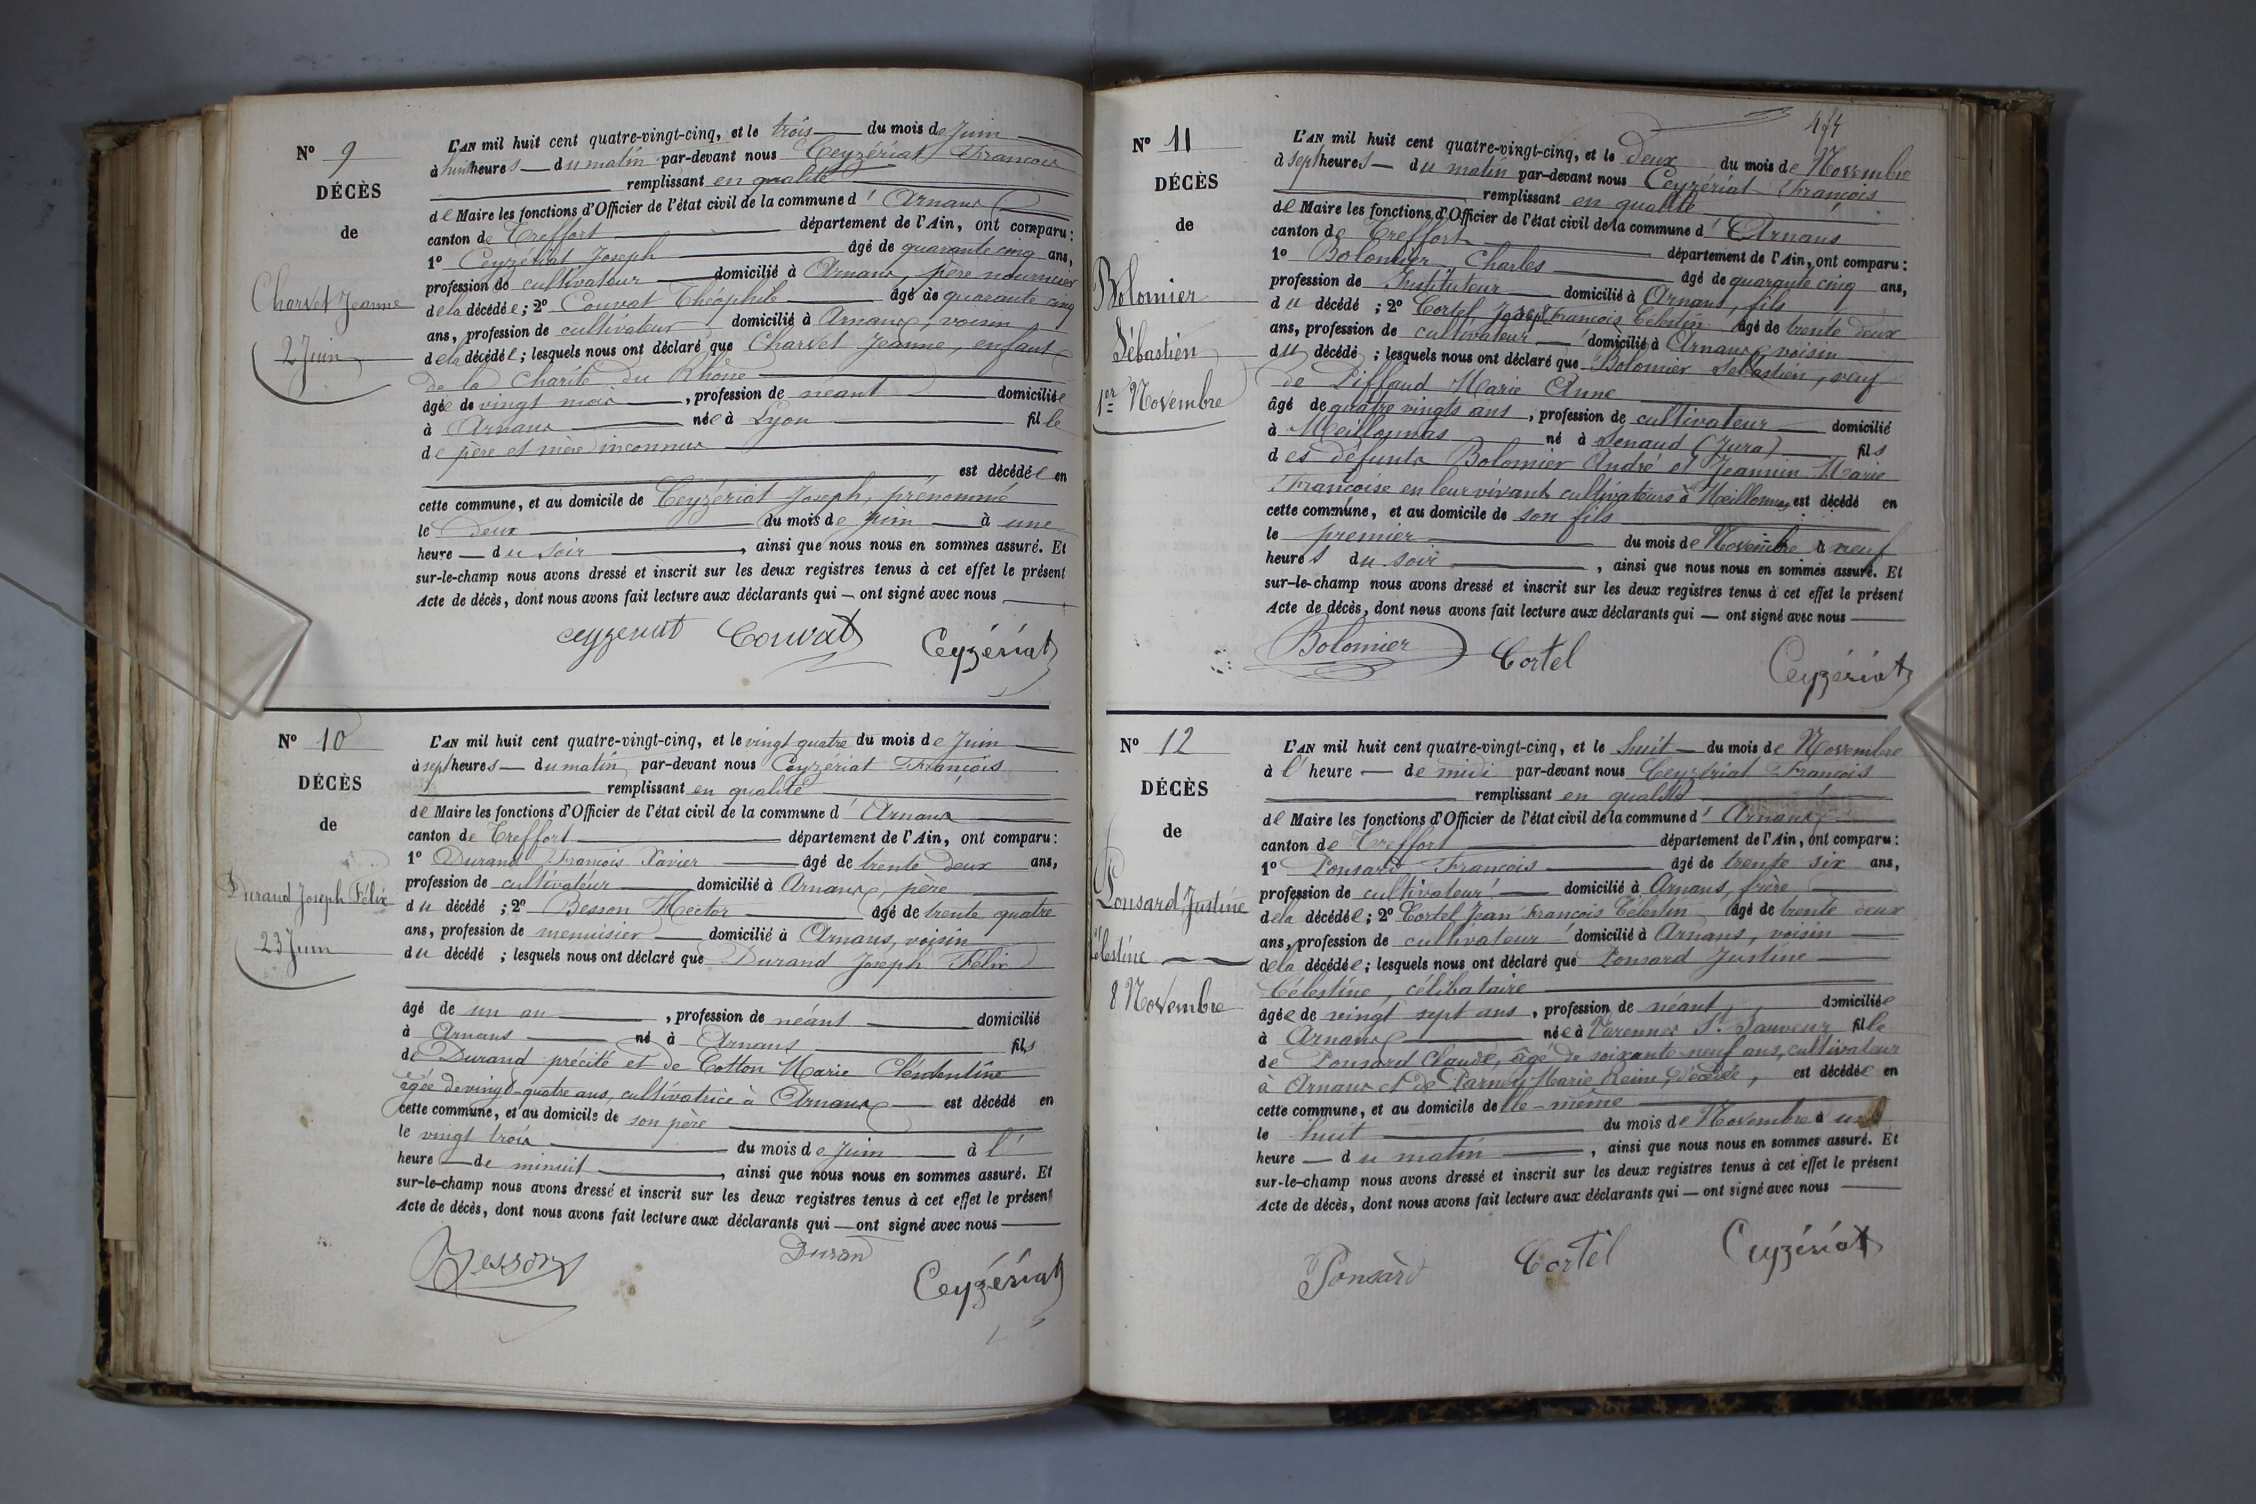 N° 9
DÉCÈS
de
Charvet Jeanne
2 Juin
L'AN mil huit cent quatre-vingt-cinq, et le trois du mois de Juin
à huit heures du matin par-devant nous Ceyzériat François
remplissant en qualité
de Maire les fonctions d'Officier de l'état civil de la commune d' Arnans
canton de Treffort département de l'Ain, ont comparu:
1° Ceyzériat Joseph âgé de quarante cinq ans,
profession de cultivateur domicilié à Arnans, père nourricier
de la décédée; 2° Convat Théophile âgé de quarante cinq
ans, profession de cultivateur domicilié à Arnans, voisin
de la décédée; lesquels nous ont déclaré que Charvet Jeanne, enfant
de la Charité du Rhône
âgée de vingt mois, profession de néant domiciliée
à Arnans née à Lyon fille
de père et mère inconnus
est décédée en
cette commune, et au domicile de Ceyzériat Joseph, prénommé
le deux du mois de Juin à une
heure du soir, ainsi que nous nous en sommes assuré. Et
sur-le-champ nous avons dressé et inscrit sur les deux registres tenus à cet effet le présent
Acte de décès, dont nous avons fait lecture aux déclarants qui — ont signé avec nous
ceyzeriat Convat Ceyzériat
N° 10
DÉCÈS
de
Durand Joseph Félix
23 Juin
L'AN mil huit cent quatre-vingt-cinq, et le vingt quatre du mois de Juin
à sept heures du matin par-devant nous Ceyzeriat François
remplissant en qualité
de Maire les fonctions d'Officier de l'état civil de la commune d' Arnans
canton de Treffort département de l'Ain, ont comparu:
1° Durand François Xavier âgé de trente deux ans,
profession de cultivateur domicilié à Arnans, père
du décédé; 2° Besson Hector âgé de trente quatre
ans, profession de menuisier domicilié à Arnans, voisin
du décédé; lesquels nous ont déclaré que Durand Joseph Félix
âgé de un an, profession de néant domicilié
à Arnans né à Arnans fils
de Durand précité et de Cotton Marie Clémentine
âgée de vingt-quatre ans, cultivatrice à Arnans est décédé en
cette commune, et au domicile de son père
le vingt trois du mois de Juin à l'
heure de minuit, ainsi que nous nous en sommes assuré. Et
sur-le-champ nous avons dressé et inscrit sur les deux registres tenus à cet effet le présent
Acte de décès, dont nous avons fait lecture aux déclarants qui — ont signé avec nous
Besson Durand Ceyzériat
N° 11
DÉCÈS
de
Bolomier
Sébastien
1er Novembre
L'AN mil huit cent quatre-vingt-cinq, et le deux du mois de Novembre
à sept heures du matin par-devant nous Ceyzériat François
remplissant en qualité
de Maire les fonctions d'Officier de l'état civil de la commune d' Arnans
canton de Treffort département de l'Ain, ont comparu:
1° Bolomier Charles âgé de quarante cinq ans,
profession de Instituteur domicilié à Arnans, fils
du décédé; 2° Cortel François Célestin âgé de trente deux
ans, profession de cultivateur domicilié à Arnans voisin
du décédé; lesquels nous ont déclaré que Bolomier Sébastien, veuf
de Piffaud Marie Anne
âgé de quatre vingts ans, profession de cultivateur domicilié
à Meillonnas né à Senaud (Jura) fils
des défunts Bolomier André et Jeannin Marie
Françoise en leur vivant cultivateurs à Meillonnas est décédé en
cette commune, et au domicile de son fils
le premier du mois de Novembre à neuf
heures du soir, ainsi que nous nous en sommes assuré. Et
sur-le-champ nous avons dressé et inscrit sur les deux registres tenus à cet effet le présent
Acte de décès, dont nous avons fait lecture aux déclarants qui — ont signé avec nous
Bolomier Cortel Ceyzériat
N° 12
DÉCÈS
de
Ponsard Justine
Célestine
8 Novembre
L'AN mil huit cent quatre-vingt-cinq, et le huit du mois de Novembre
à l'heure de midi par-devant nous Ceyzériat François
remplissant en qualité
de Maire les fonctions d'Officier de l'état civil de la commune d' Arnans
canton de Treffort département de l'Ain, ont comparu:
1° Ponsard François âgé de trente six ans,
profession de cultivateur domicilié à Arnans, frère
de la décédée; 2° Cortel Jean François Célestin âgé de trente deux
ans, profession de cultivateur domicilié à Arnans, voisin
de la décédée; lesquels nous ont déclaré que Ponsard Justine
Célestine, célibataire
âgée de vingt sept ans, profession de néant domiciliée
à Arnans née à Varennes St Sauveur fille
de Ponsard Claude, âgé de soixante-neuf ans, cultivateur
à Arnans et de Marie Reine, décédée, est décédée en
cette commune, et au domicile d'elle-même
le huit du mois de Novembre à une
heure du matin, ainsi que nous nous en sommes assuré. Et
sur-le-champ nous avons dressé et inscrit sur les deux registres tenus à cet effet le présent
Acte de décès, dont nous avons fait lecture aux déclarants qui — ont signé avec nous
Ponsard Cortel Ceyzériat